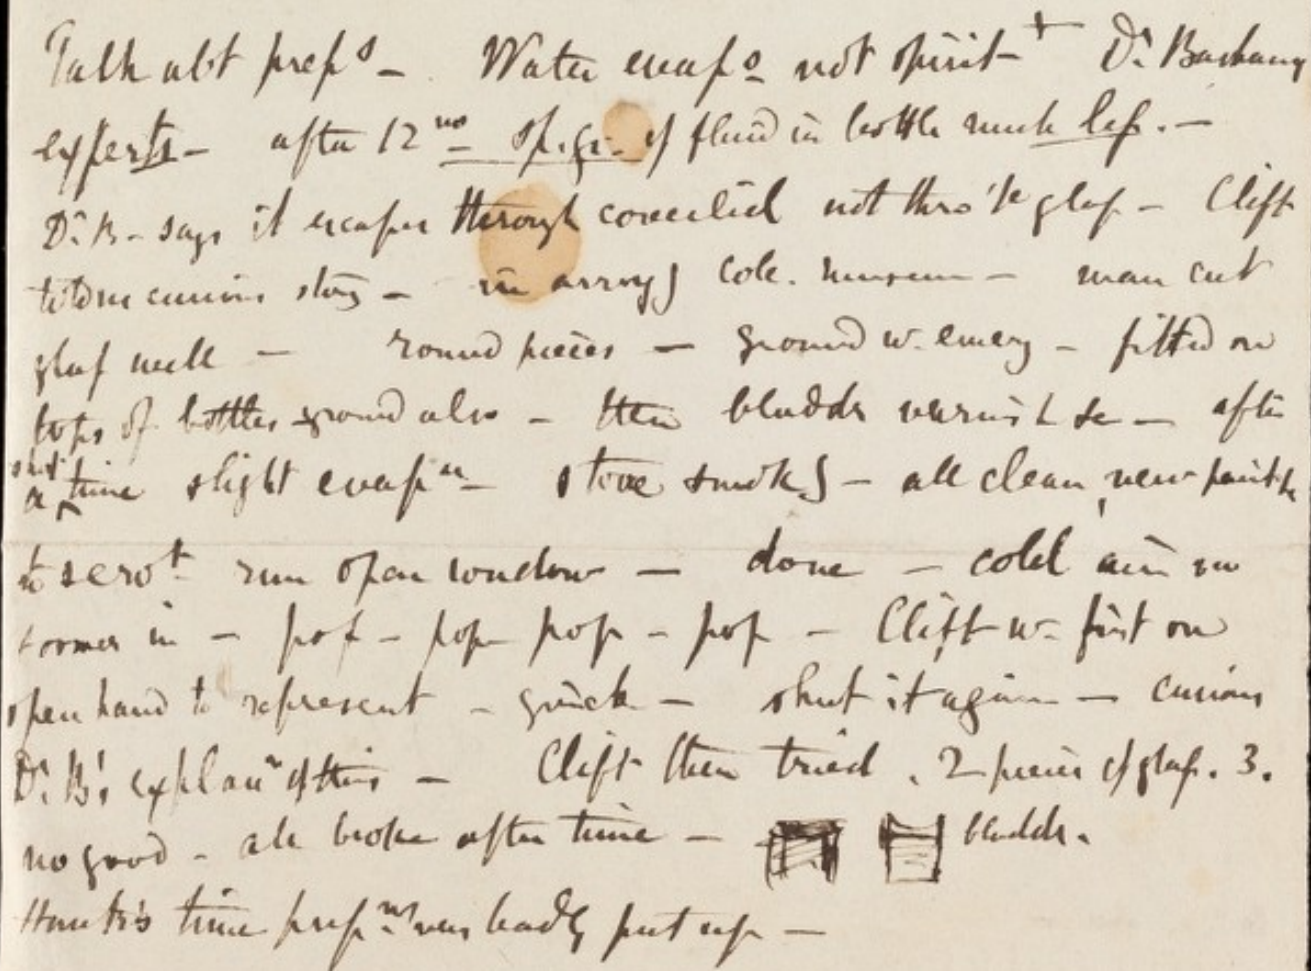 Talk abt prepˢ — Water evapˢ not spirit + Dʳ Buchanan
experts — after 12 ᵐᵒ sp. gr. of fluid in bottle much less. —
Dʳ B — says it escapes through concealed not thro' the glass — Clift
told me curious story — in arrangᵍ Coll. museum — man cut
glass well — round pieces — ground w. emery — fitted on
tops of bottles ground also — then bladder varnish &c — after
a short time slight evapⁿ — stove smokᵍ — all clean, new painted
run open window — done — cold air in
in — pop — pop pop — pop — Clift w. fist on
open hand to represent — quick — shut it again — curious
Dʳ B's explanⁿ of this — Clift then tried . 2 pieces of glass . 3 .
no good — all broke after time — bladder.
Hunter's time prepⁿˢ very badly put up —